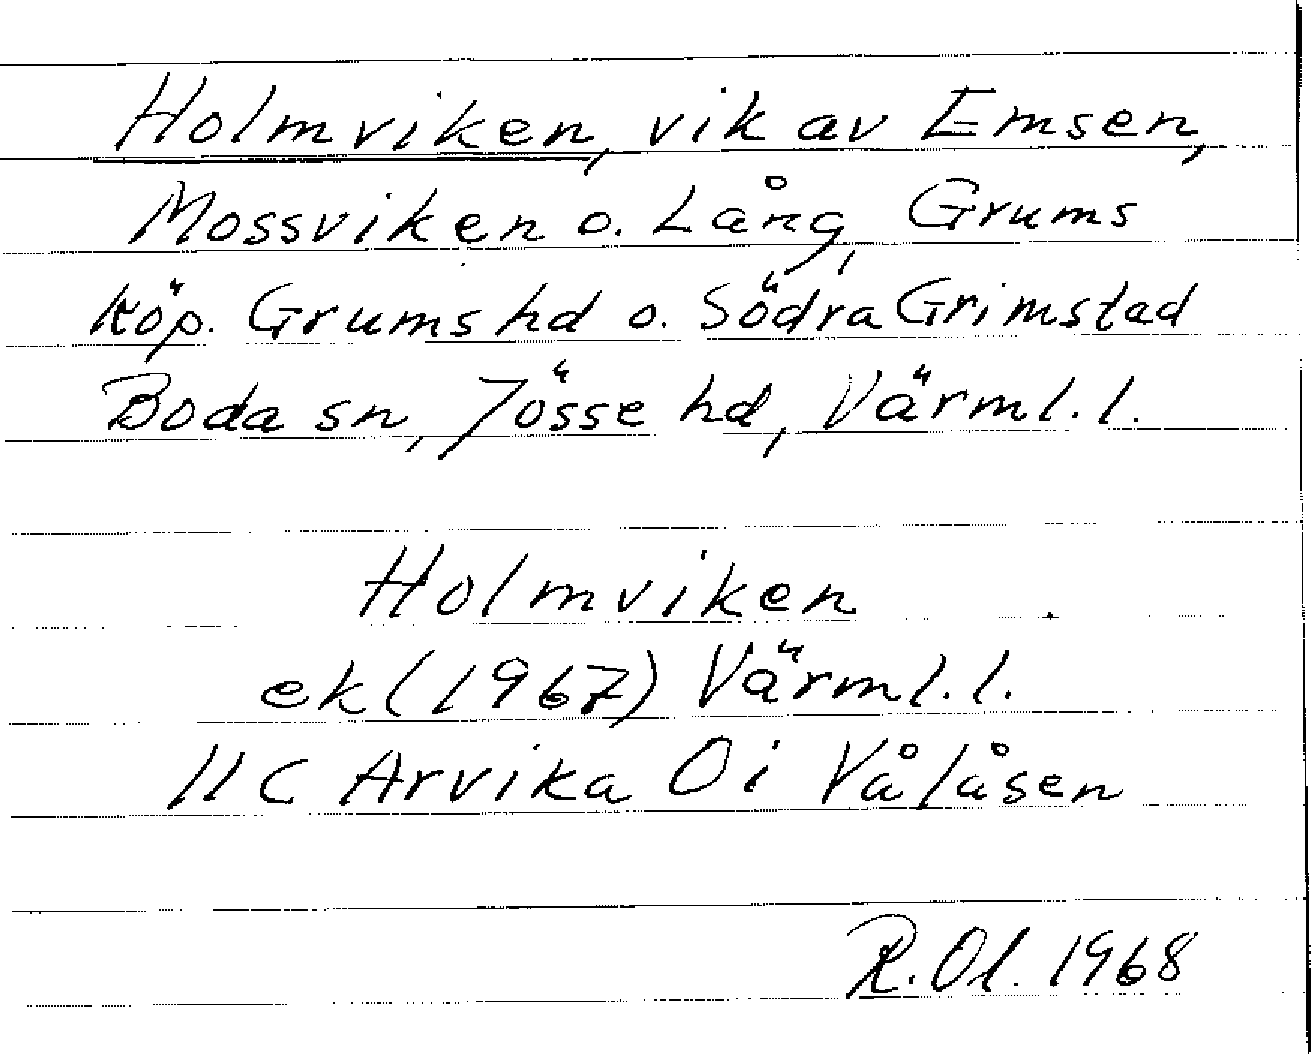 Holmviken, vik av Emsen,
Mossviken o. Lång, Grums
köp. Grums hd o. Södra Grimstad
Boda sn, Jösse hd, Värml. l.
Holmviken
ek (1967) Värml. l.
11C Arvika 0i Vålåsen
R. Ol. 1968